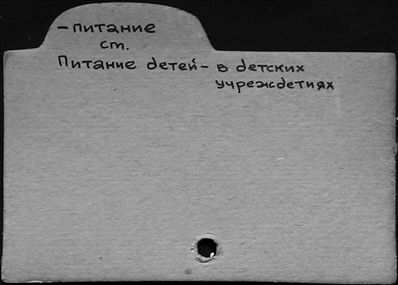 –питание
ст.
Питание детей – в детских
учреждетиях